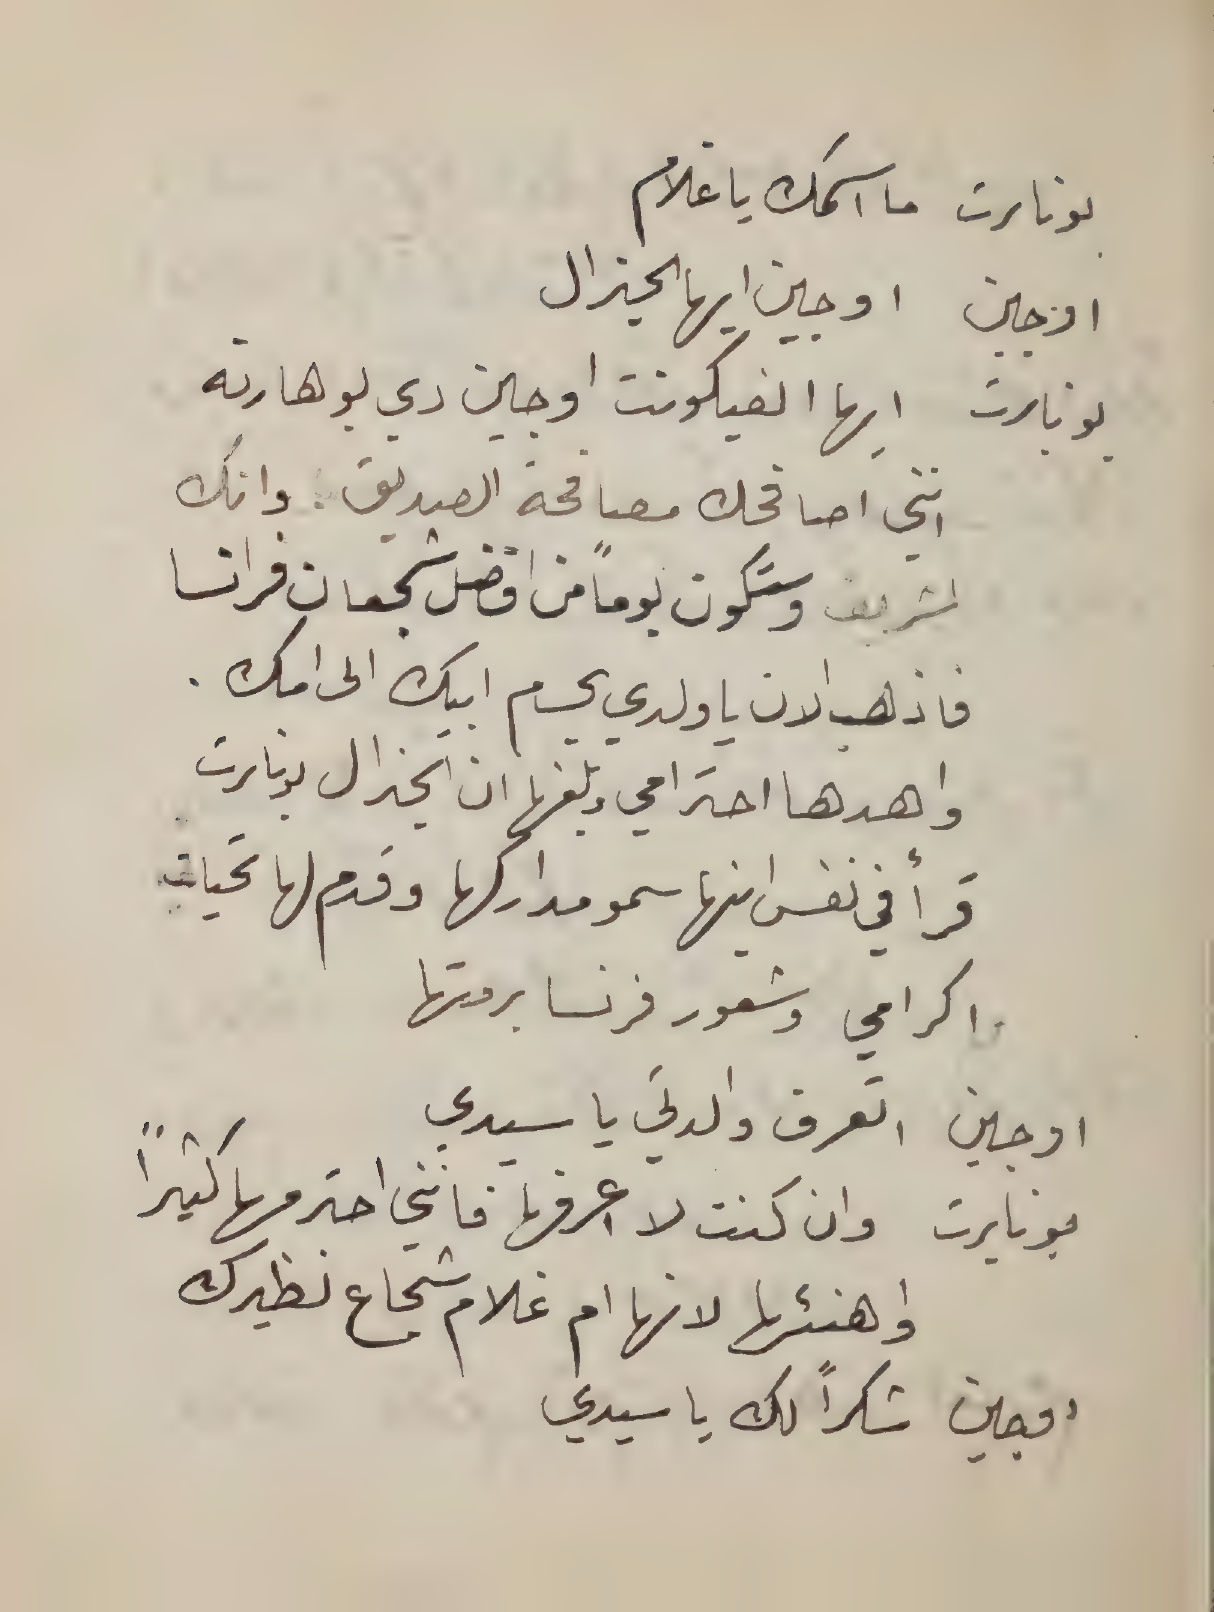 بونابرت ما اسمك يا غلام
اوجين اوجين ايها الجنرال
بونابرت ايها الفيكونت اوجين دي بوهارنه
انني اصافحك مصافحة الصديق . وانك
لشريف وستكون يوماً من افضل شجعان فرانسا
فاذهب الان يا ولدي بحسام ابيك الى امك .
واهدها احترامي وبلغها ان الجنرال بونابرت
قرأ في نفس ابنها سمو مداركها وقدم لها تحيات
واكرامي وشعور فرنسا برمتها
اوجين اتعرف والدتي يا سيدي
بونابرت وان كنت لا اعرفها فانني احترمها كثيراً
واهنئها لانها ام غلام شجاع نظيرك
اوجين شكراً لك يا سيدي